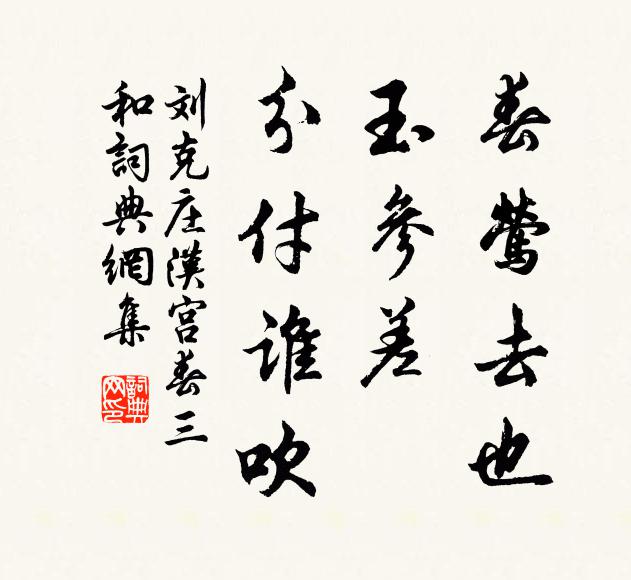 春鶯去也
玉參差
分付誰吹
刘克庄漢宫春三
和詞典網集
詞典
网印